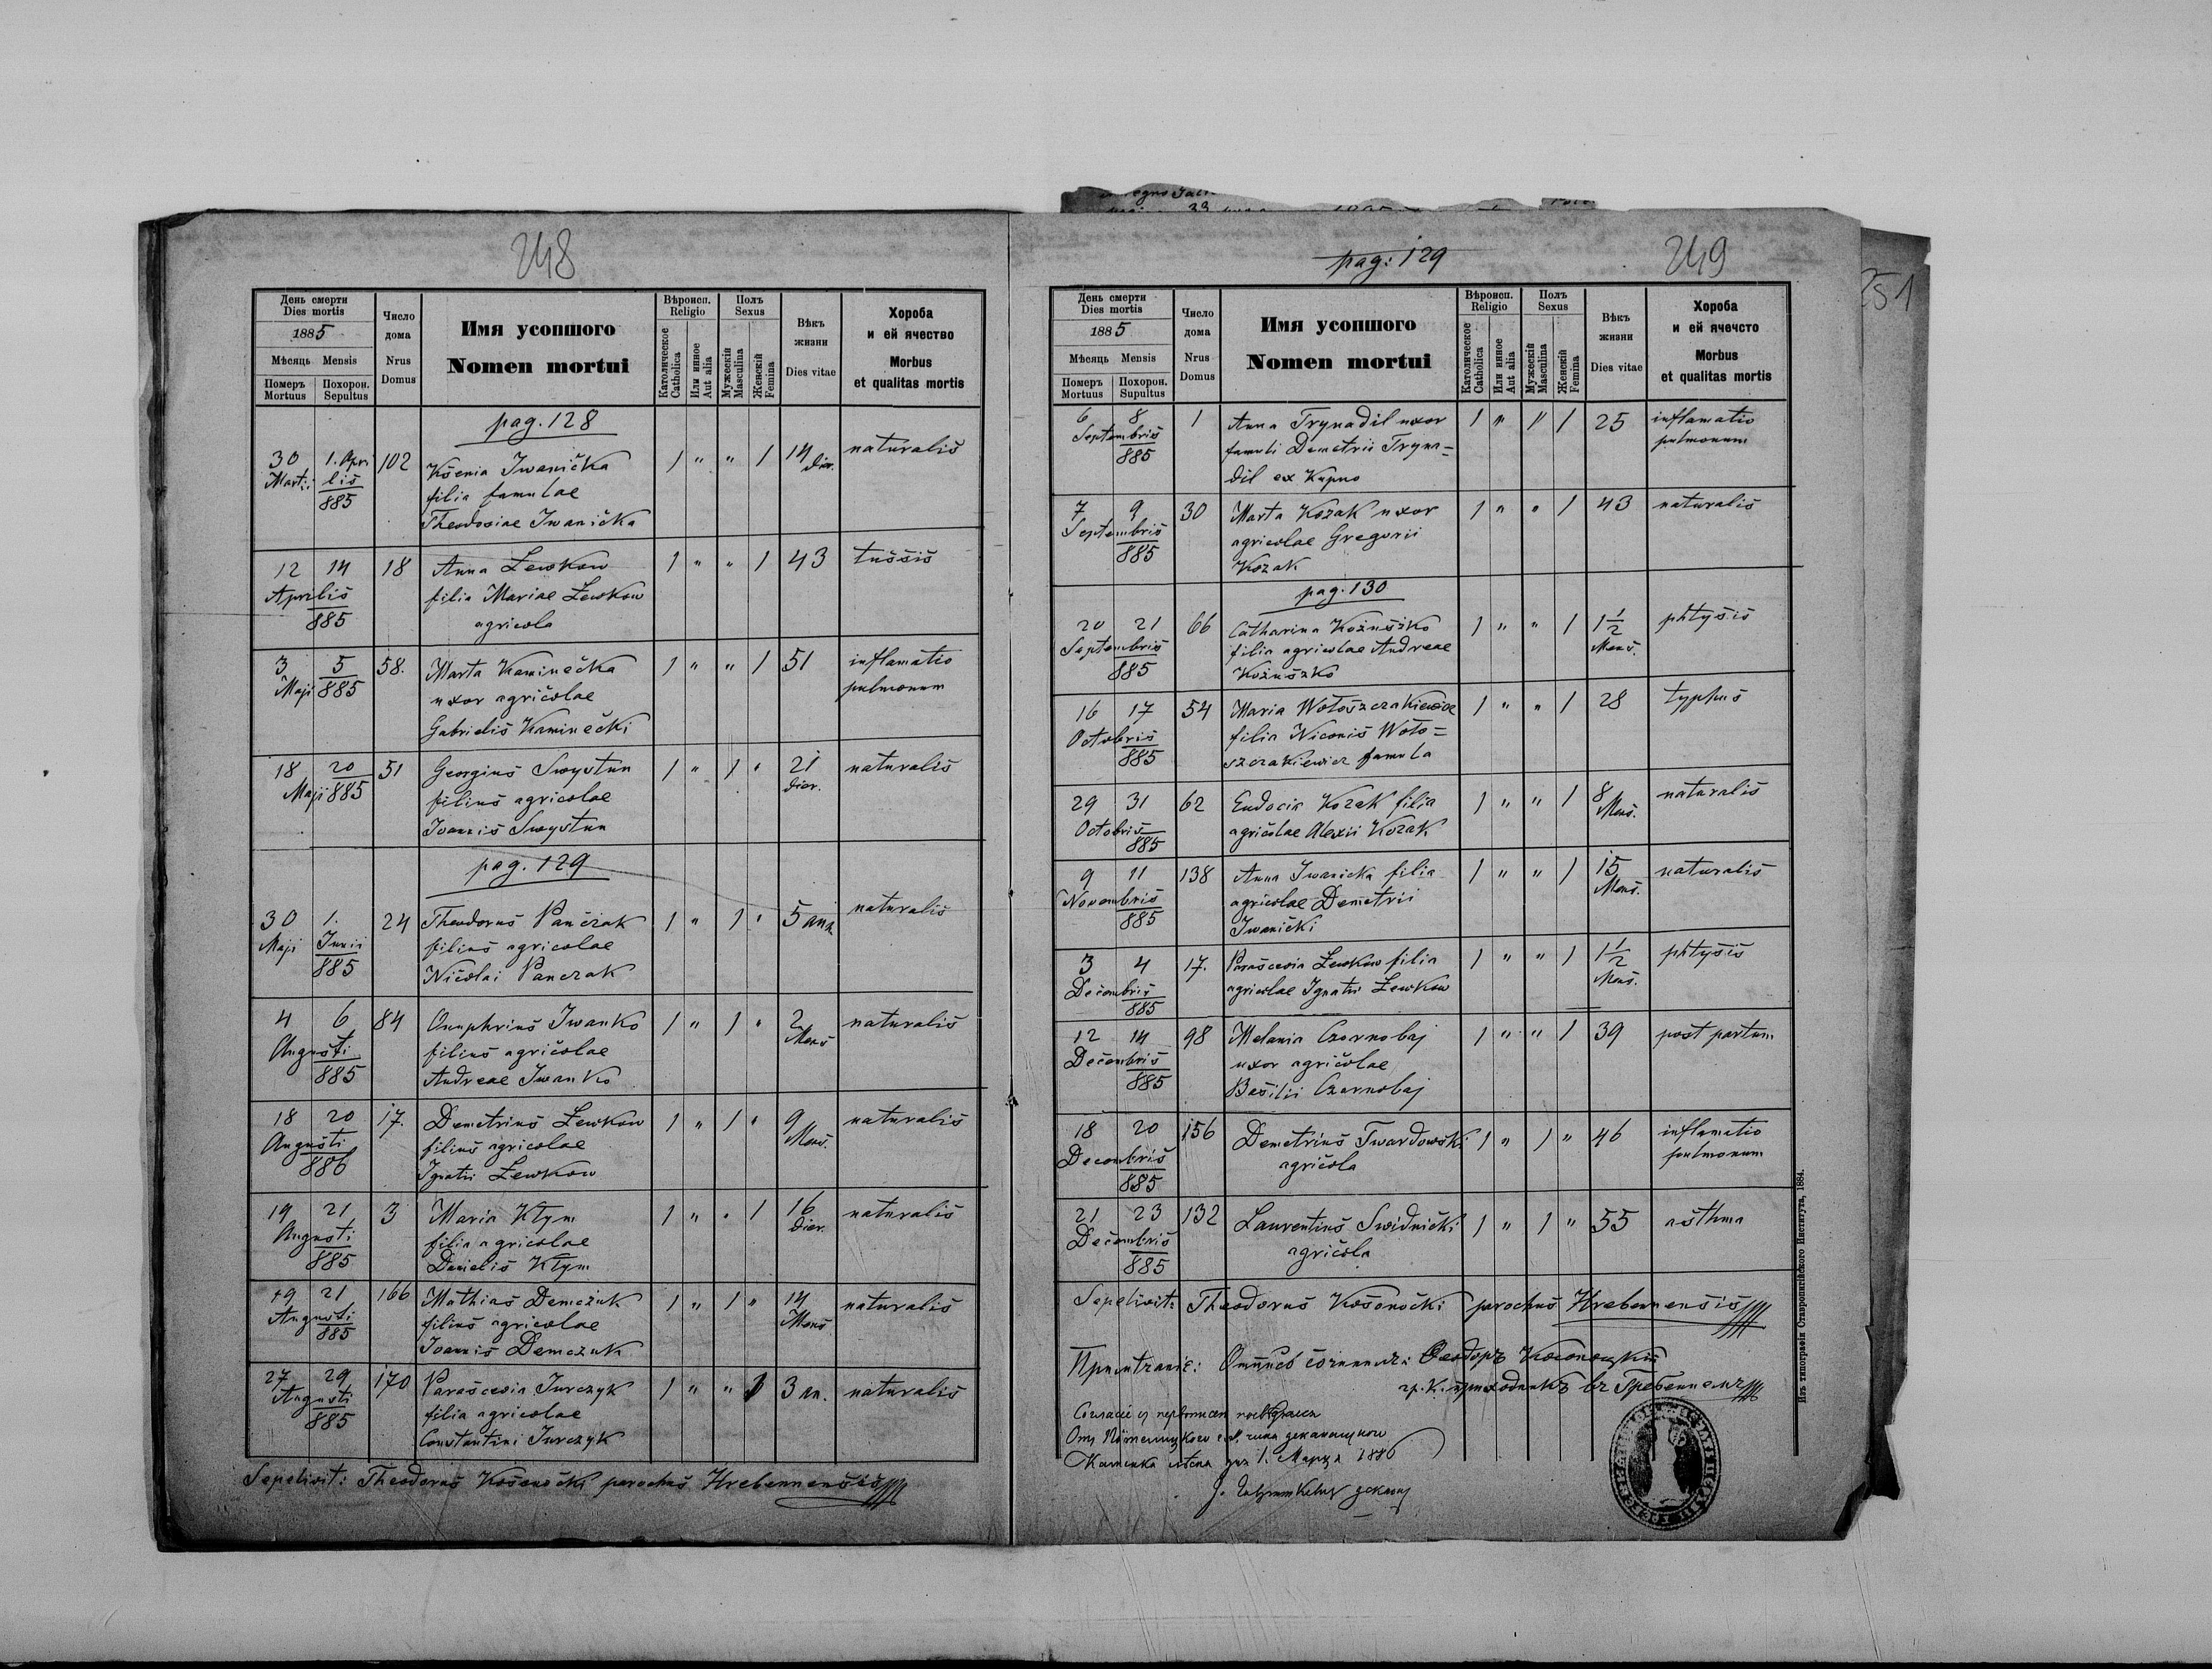 248
День смерти
Dies mortis
1885
Мѣсяць Mensis
Померъ Похорон.
Mortuus Sepultus
Число
дома
Nrus
Domus
Имя усопшого
Nomen mortui
Вѣроисп.
Religio
Католическое
Catholica
Или инное
Aut alia
Полъ
Sexus
Мужескій
Masculina
Женскій
Femina
Вѣкъ
жизни
Dies vitae
Хороба
и ей ячество
Morbus
et qualitas mortis
pag. 128
30 1. Apri 102 Ksenia Iwanička 1 " " 1 14 naturalis
Martii lis filia famulae dier.
885 Theodosiae Iwanička
12 14 18 Anna Lewkow 1 " " 1 43 tussis
Aprilis filia Mariae Lewkow
885 agricola
3 5 58. Marta Kaminečka 1 " " 1 51 inflamatio
Maji 885 uxor agricolae pulmonum
Gabrielis Kaminečki
18 20 51 Georgius Swystun 1 " 1 " 21 naturalis
Maji 885 filius agricolae dier.
Joannis Swystun
pag. 129
30 1. 24 Theodorus Pančzak 1 " 1 " 5 ann. naturalis
Maji Junii filius agricolae
885 Nicolai Panczak
4 6 84 Onuphrius Iwanko 1 " 1 " 2 naturalis
Augusti filius agricolae Mens
885 Andreae Iwanko
18 20 17. Demetrius Lewkow 1 " 1 " 9 naturalis
Augusti filius agricolae Mens.
886 Ignatii Lewkow
19 21 3 Maria Kłym 1 " " 1 16 naturalis
Augusti filia agricolae dier.
885 Danielis Kłym
19 21 166 Mathias Demczuk 1 " 1 " 14 naturalis
Augusti filius agricolae Mens
885 Joannis Demczuk
27 29 170 Parascevia Jurczyk 1 " " 1 3 an. naturalis
Augusti filia agricolae
885 Constantini Jurczyk
Sepelivit: Theodorus Kosonočki parochus Hrebennensis
pag: 129
249
День смерти
Dies mortis
1885
Мѣсяць Mensis
Померъ Похорон.
Mortuus Supultus
Число
дома
Nrus
Domus
Имя усопшого
Nomen mortui
Вѣроисп.
Religio
Католическое
Catholica
Или инное
Aut alia
Полъ
Sexus
Мужескій
Masculina
Женскій
Femina
Вѣкъ
жизни
Dies vitae
Хороба
и ей ячечсто
Morbus
et qualitas mortis
6 8 1 Anna Trynadil uxor 1 " " 1 25 inflamatio
Septembris famuli Demetrii Tryna= pulmonum
885 dil ex Kupno
7 9 30 Marta Kozak uxor 1 " " 1 43 naturalis
Septembris agricolae Gregorii
885 Kozak
pag. 130
20 21 66 Catharina Kožuszko 1 " " 1 1½ phtysis
Septembris filia agricolae Andreae Mens.
885 Kožuszko
16 17 54 Maria Wołoszczakiewicz 1 " " 1 28 typhus
Octobris filia Niconis Woło=
885 szczakiewicz famula
29 31 62 Eudocia Kozak filia 1 " " 1 8 naturalis
Octobris agricolae Alexii Kozak Mens.
885
9 11 138 Anna Iwanicka filia 1 " " 1 15 naturalis
Novembris agricolae Demetrii Mens.
885 Iwanički
3 4 17. Parascevia Lewkow filia 1 " " 1 1½ phtysis
Decembris agricolae Ignatii Lewkow Mens.
885
12 14 98 Melania Czornobaj 1 " " 1 39 post partum
Decembris uxor agricolae
885 Basilii Czornobaj
18 20 156 Demetrius Twardowski 1 " 1 " 46 inflamatio
Decembris agricola pulmonum
885
21 23 132 Laurentius Swidnički 1 " 1 " 55 asthma
Decembris agricola
885
Sepelivit: Theodorus Kosonočki parochus Hrebennensis
Ѳеодоръ Косоноцкій
гр. к. приходникъ въ Гребенном
1. Марця 1886
Изъ типографіи Ставропигійского Института, 1884.
251